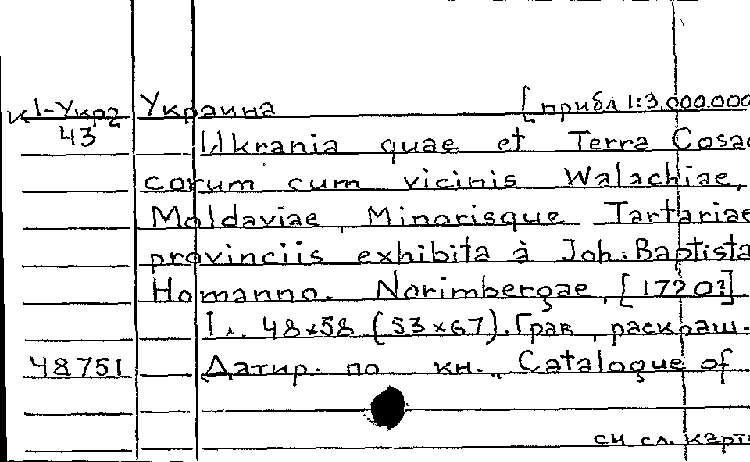 К1-Укр2 Украина [прибл 1:3.000.000
43
Ukrania quae et Terra Cosac
corum cum vicinis Walachiae,
Moldaviae, Minorisque Tartariae
provinciis exhibita à Joh. Baptista
Homanno. Norimbergae, [1720?]
1 л. 48×58 (53×67). Грав, раскраш.
48751 Датир. по кн., Catalogue of
см сл. карт